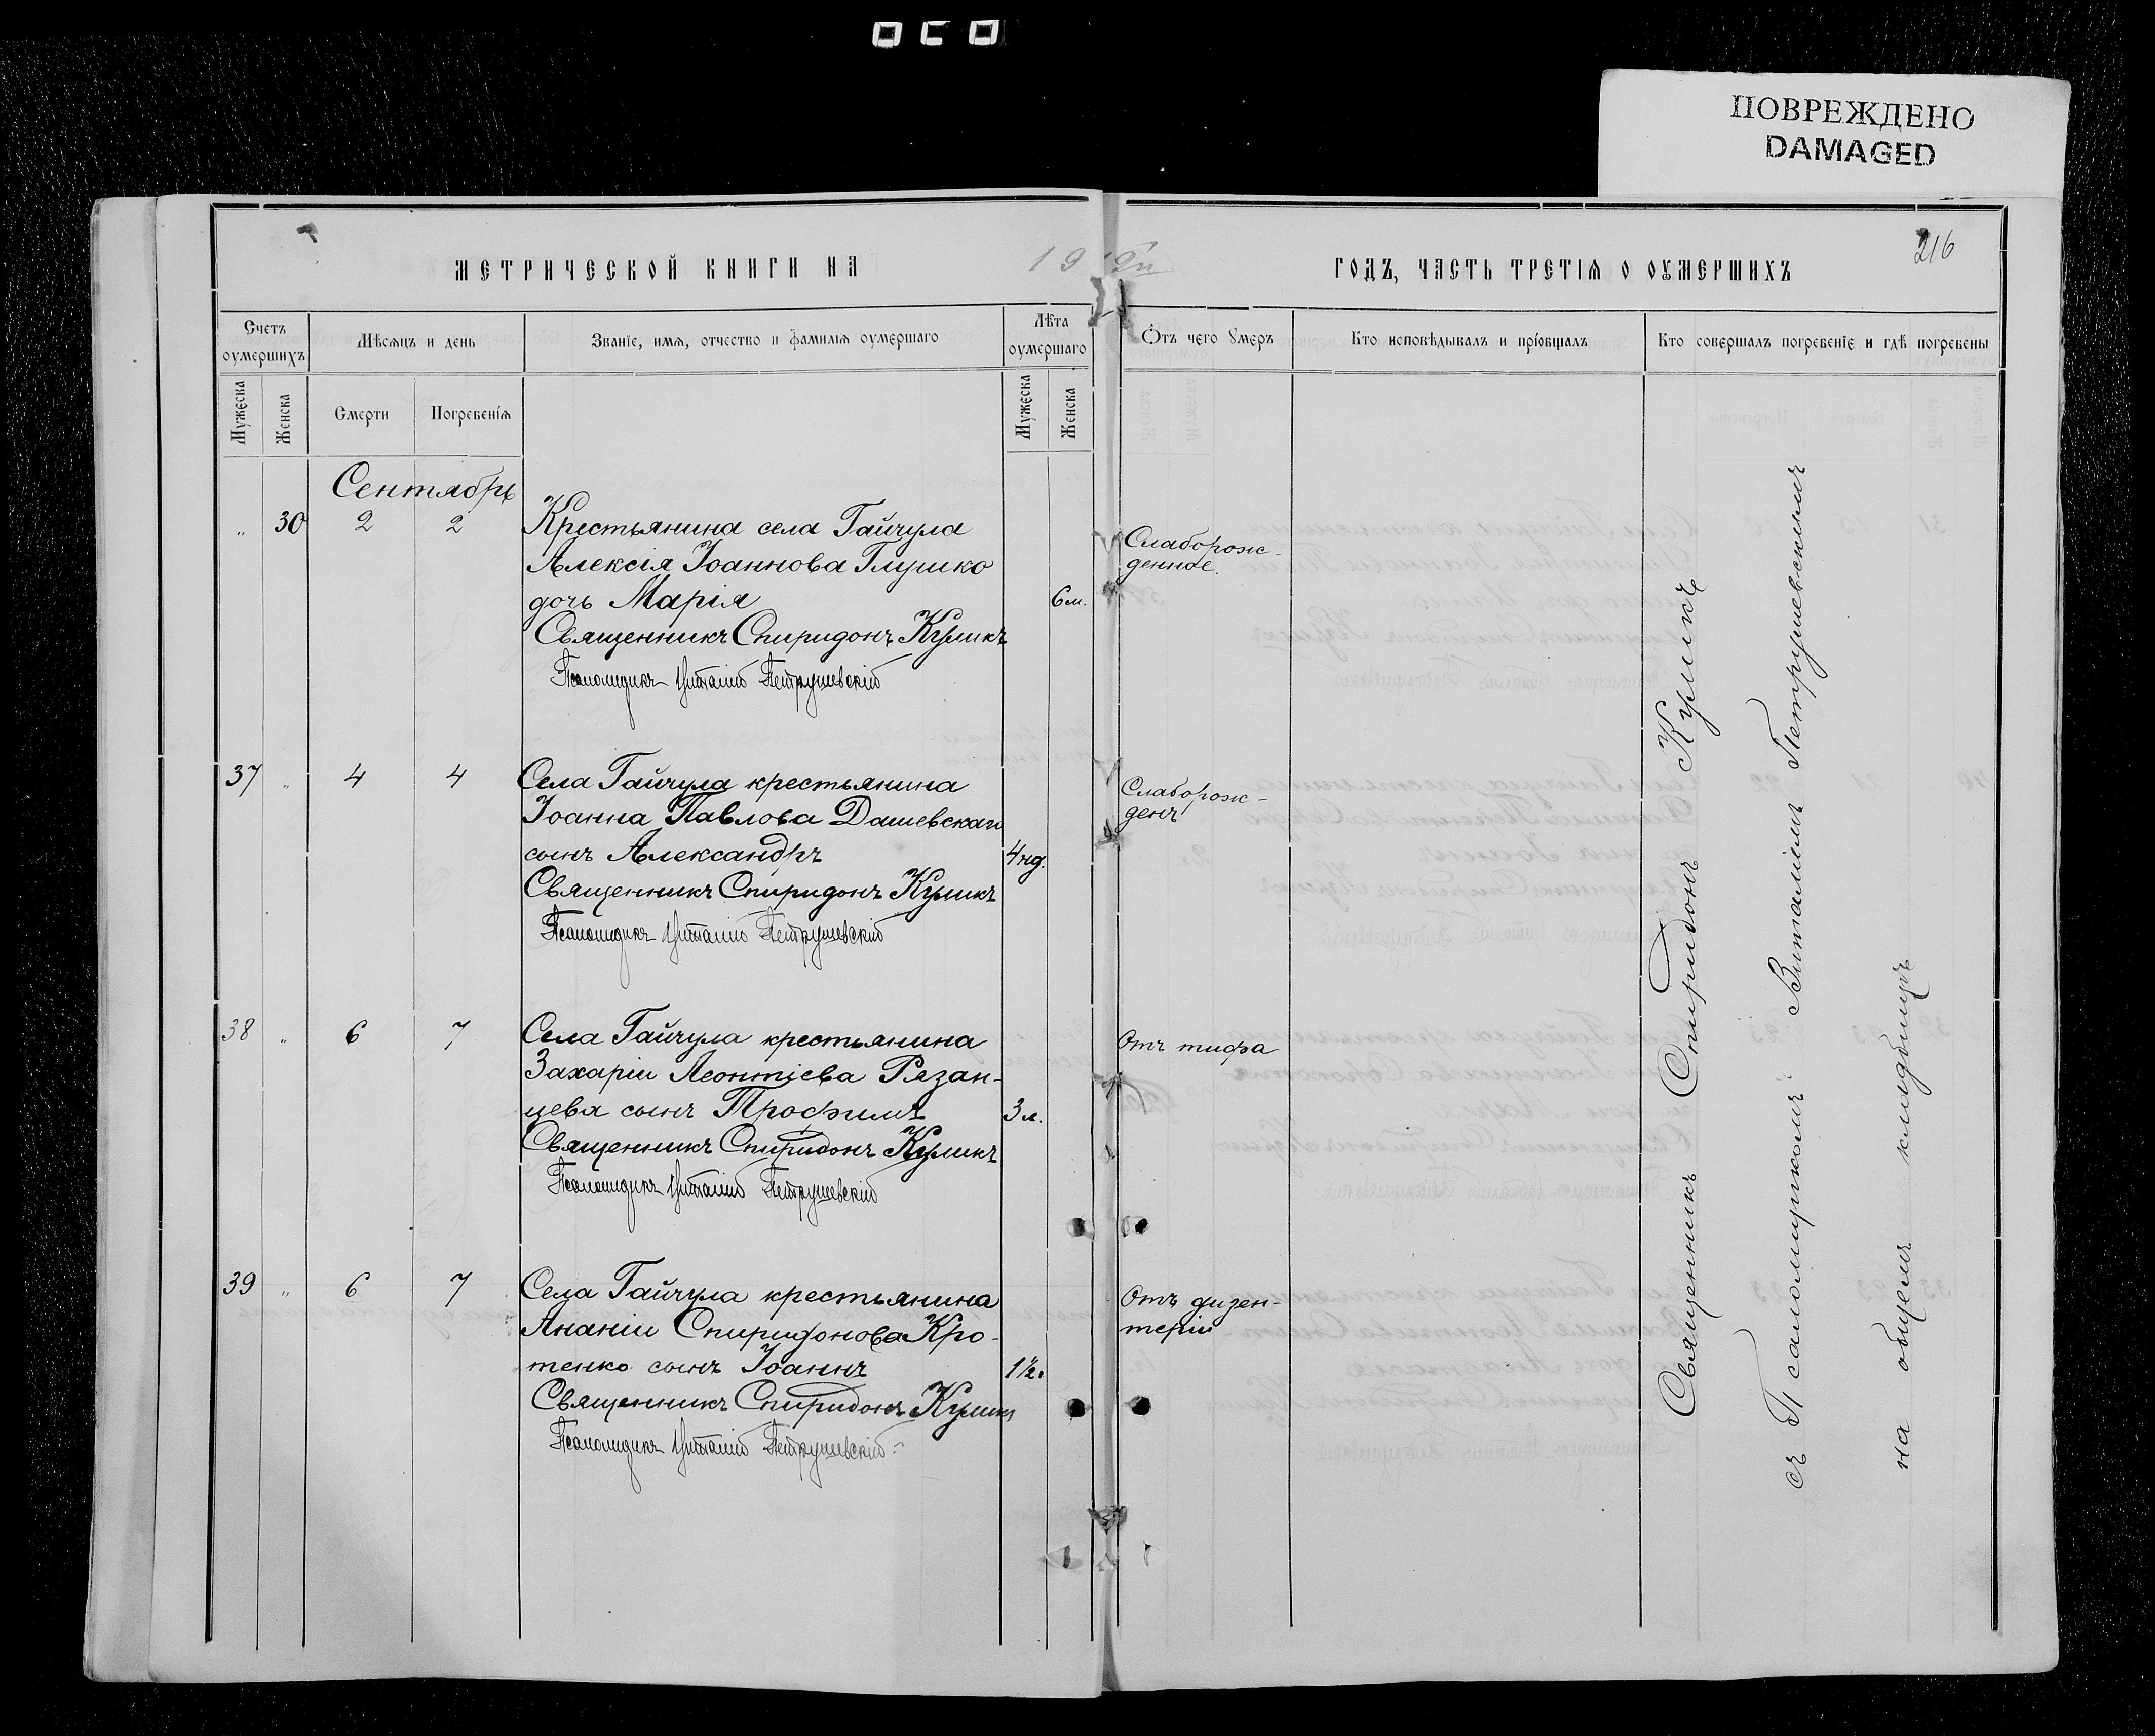 ПОВРЕЖДЕНО
DAMAGED
216
МЕТРИЧЕСКОЙ КНИГИ НА 19
ГОДЪ, ЧАСТЬ ТРЕТІѦ О ОУМЕРШИХЪ
Счетъ оумершихъ
Мѣсѧцъ и день
Званіе, имѧ, отчество и фамиліѧ оумершаго
Лѣта оумершаго
Ѿтъ чего Умеръ
Кто исповѣдывалъ и пріобщалъ
Кто совершалъ погребеніе и гдѣ погребены
Мужеска
Женска
Смерти
Погребеніѧ
Мужеска
Женска
Сентябрь
" 30 2 2 Крестьянина села Гайчула
Алексія Іоаннова Глушко
дочь Марія 6 м.
Священникъ Спиридонъ Куликъ
Псаломщикъ Виталій Петрушевскій
Слаборож-
денное.
37 " 4 4 Села Гайчула крестьянина
Іоанна Павлова Дашевскаго
сынъ Александръ 4 нд.
Священникъ Спиридонъ Куликъ
Псаломщикъ Виталій Петрушевскій
Слаборож-
денъ
38 " 6 7 Села Гайчула крестьянина
Захаріи Леонтіева Рязан-
цева сынъ Трофимъ 3 л.
Священникъ Спиридонъ Куликъ
Псаломщикъ Виталій Петрушевскій
Отъ тифа
39 " 6 7 Села Гайчула крестьянина
Ананіи Спиридонова Кро-
тенко сынъ Іоаннъ 1½.
Священникъ Спиридонъ Куликъ
Псаломщикъ Виталій Петрушевскій
Отъ дизен-
теріи
Священникъ Спиридонъ Куликъ
съ Псаломщикомъ Виталіемъ Петрушевскимъ
на общемъ кладбищѣ